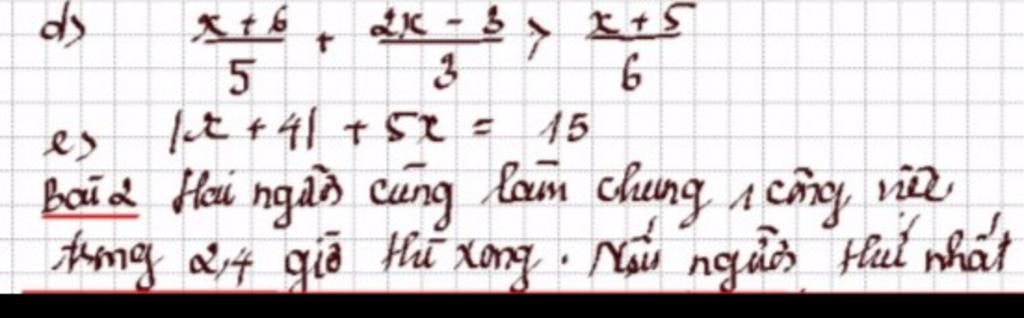 d) (x + 6)/5 + (2x - 3)/3 > (x + 5)/6
e) |x + 4| + 5x = 15
Bài 2 Hai người cùng làm chung 1 công việc
trong 2,4 giờ thì xong. Nếu người thứ nhất